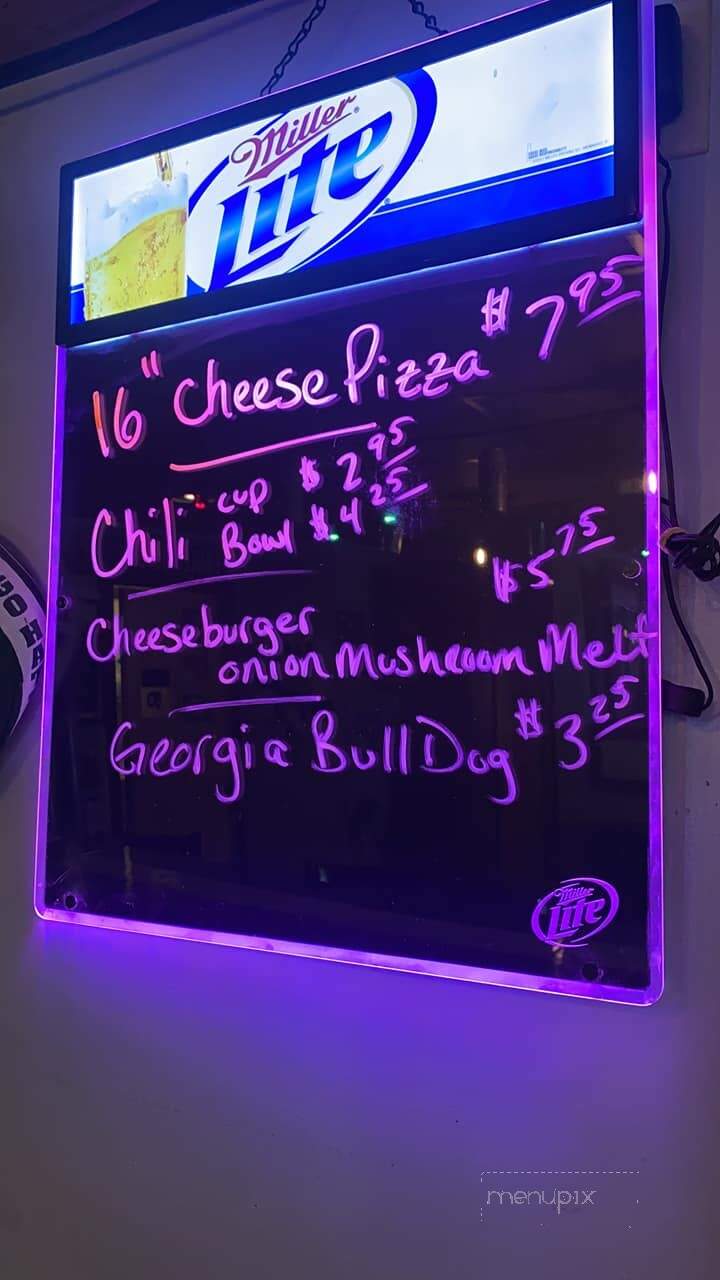 Miller
Lite
16" Cheese Pizza $7.95
Chili cup $2.95
Bowl $4.25
$5.75
Cheeseburger
onion Mushroom Melt
Georgia BullDog $3.25
Miller
Lite
menupix